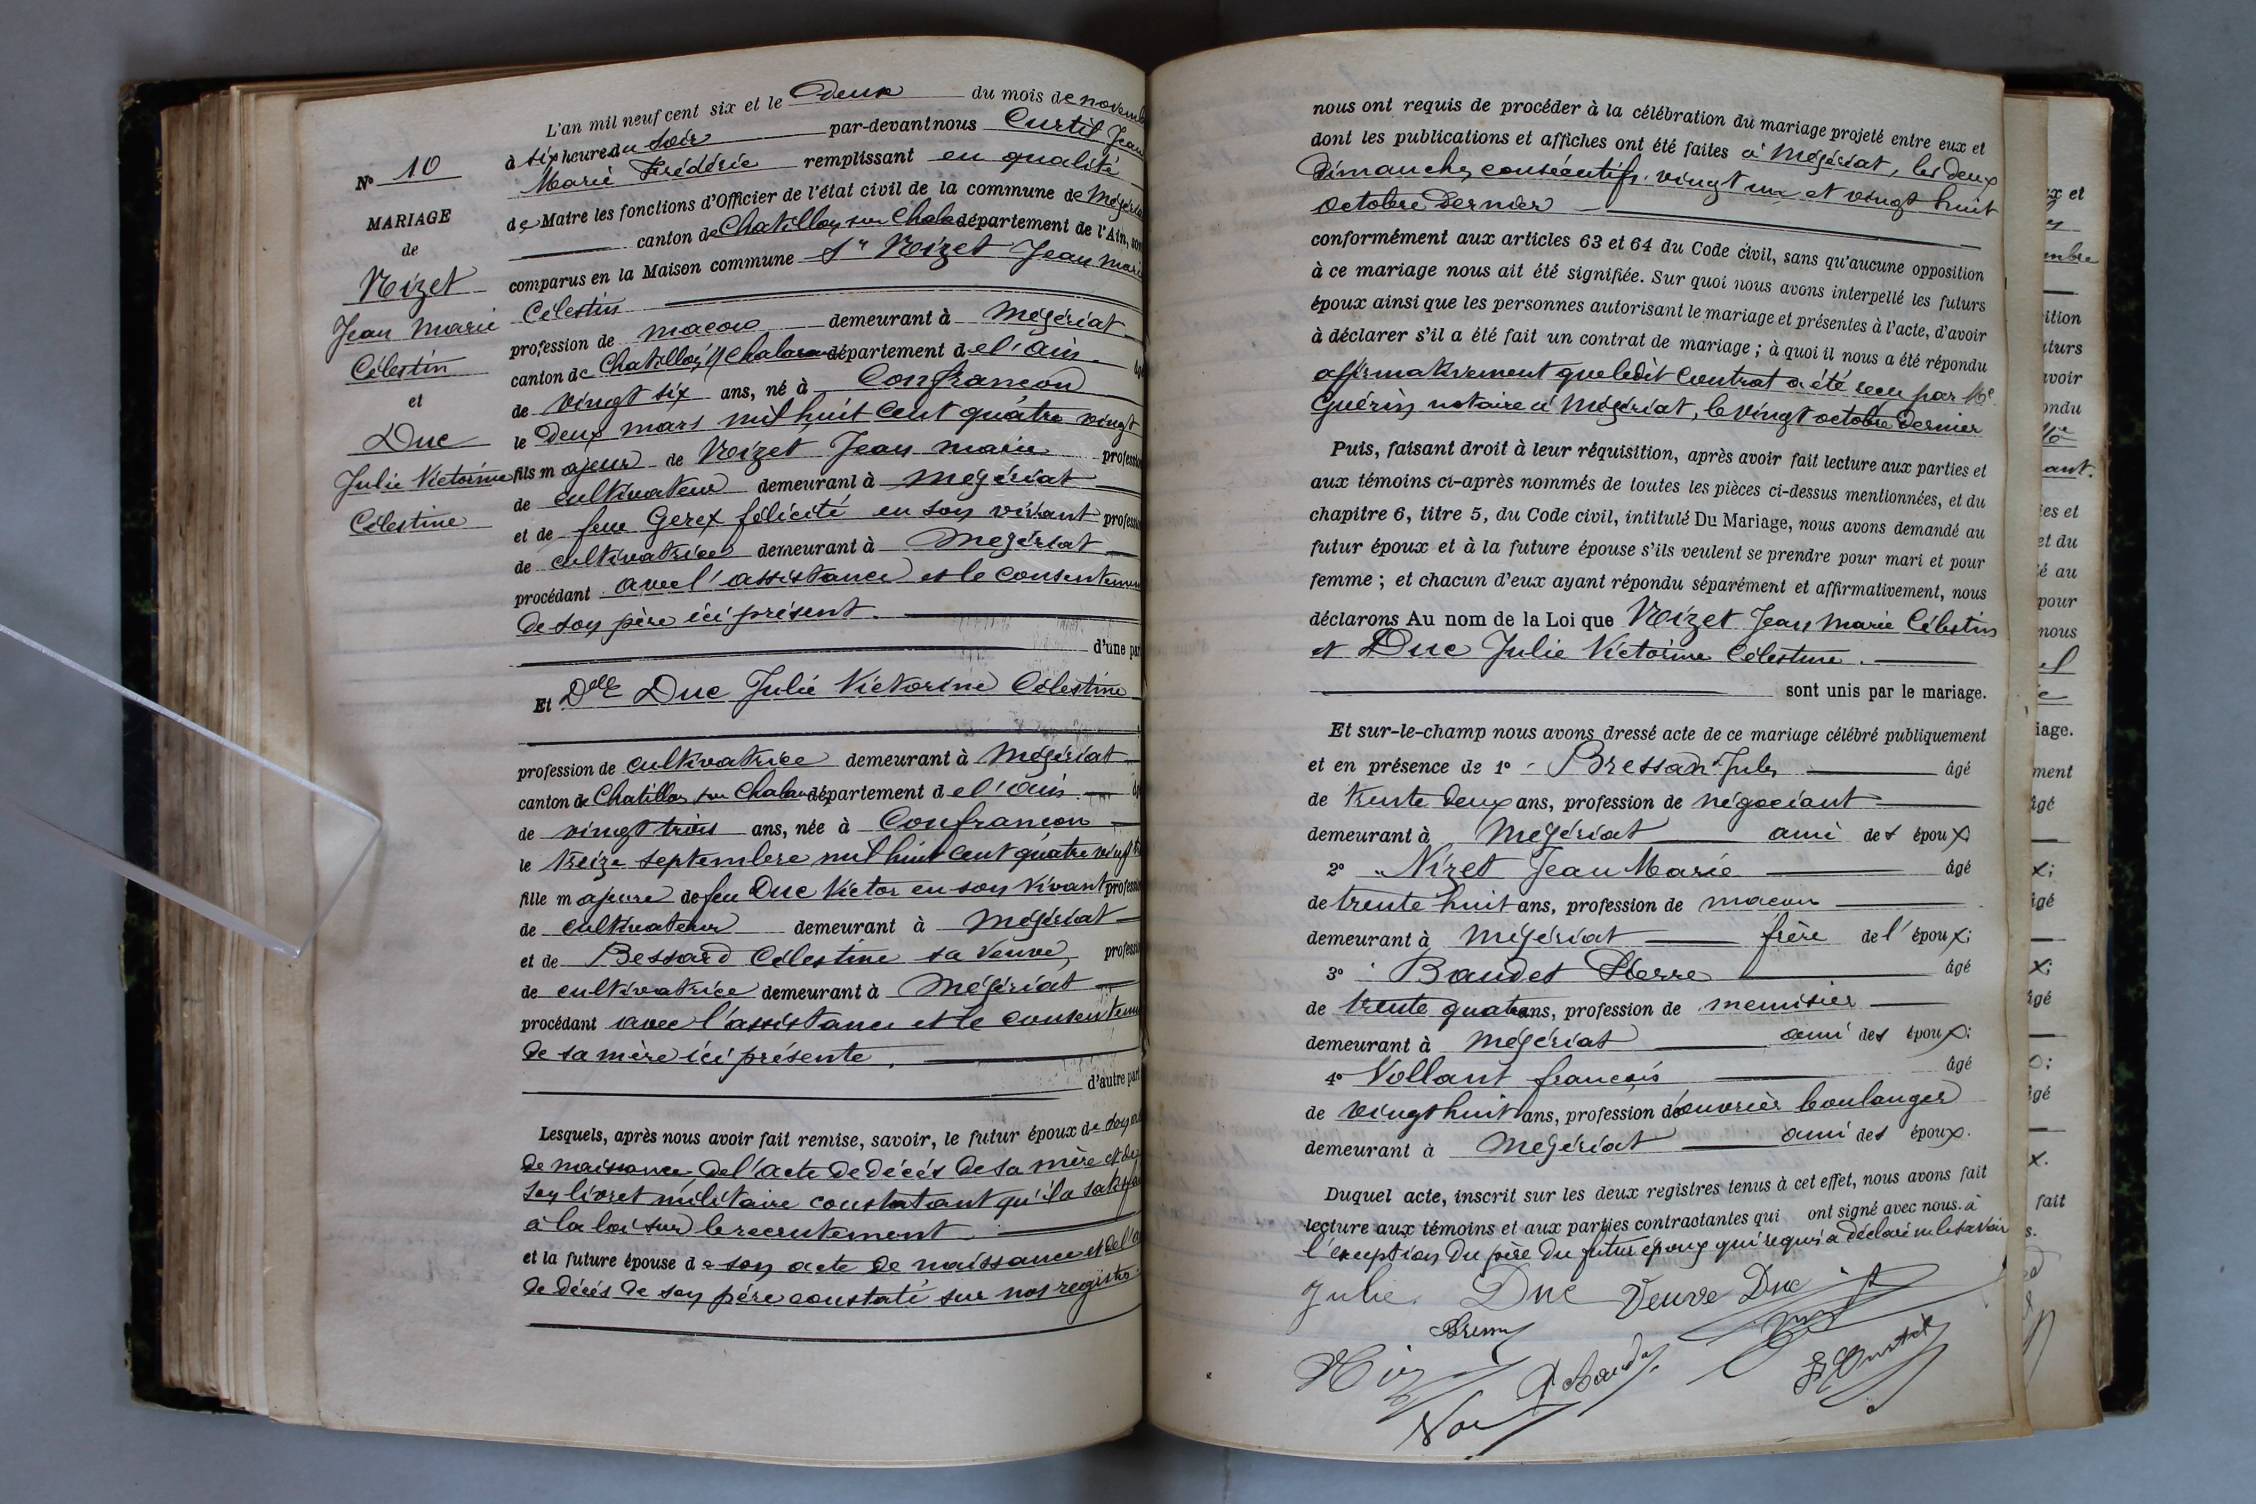 N° 10
MARIAGE
de
Nizet
Jean Marie
Célestin
et
Duc
Julie Victorine
Célestine
L'an mil neuf cent six et le deux du mois de novemb
à six heure du soir par-devant nous Curtil Jean
Marie Frédéric remplissant en qualité
de Maire les fonctions d'Officier de l'état civil de la commune de Mézéria
canton de Chatillon sur Chala département de l'Ain, son
comparus en la Maison commune Sr Nizet Jean Marie
Célestin
profession de macon demeurant à Mézériat
canton de Chatillon s/ Chalaronne département de l'ain âgé
de vingt six ans, né à Confrancon
le deux mars mil huit cent quatre vingt
fils majeur de Nizet Jean marie profession
de cultivateur demeurant à Mézériat
et de feue Gerex félicité en son vivant profession
de cultivatrice demeurant à Mezériat
procédant avec l'assistance et le consentemen
de son père ici présent.
d'une par
Et Delle Duc Julie Victorine Célestine
profession de cultivatrice demeurant à Mézériat
canton de Chatillon sur Chalar département de l'ain
de vingt trois ans, née à Confrancon
le treize septembre mil huit cent quatre vingt
fille majeure de feu Duc Victor en son vivant profession
de cultivateur demeurant à Mézériat
et de Bessard Célestine sa veuve, profession
de cultivatrice demeurant à Mézériat
procédant avec l'assistance et le consentem
de sa mère ici présente.
d'autre part
Lesquels, après nous avoir fait remise, savoir, le futur époux de son
de naissance de l'acte de décés de sa mère et de
son livret militaire constatant qu'il a satisfai
à la loi sur le recrutement
et la future épouse de son acte de naissance et de l'a
de décés de son père constaté sur nos registres
nous ont requis de procéder à la célébration du mariage projeté entre eux et
dont les publications et affiches ont été faites à Mézériat, les deux
Dimanches consécutifs, vingt un et vingt huit
octobre dernier
conformément aux articles 63 et 64 du Code civil, sans qu'aucune opposition
à ce mariage nous ait été signifiée. Sur quoi nous avons interpellé les futurs
époux ainsi que les personnes autorisant le mariage et présentes à l'acte, d'avoir
à déclarer s'il a été fait un contrat de mariage ; à quoi il nous a été répondu
affirmativement que ledit contrat a été recu par Me
Guérin notaire à Mézériat, le vingt octobre dernier
Puis, faisant droit à leur réquisition, après avoir fait lecture aux parties et
aux témoins ci-après nommés de toutes les pièces ci-dessus mentionnées, et du
chapitre 6, titre 5, du Code civil, intitulé Du Mariage, nous avons demandé au
futur époux et à la future épouse s'ils veulent se prendre pour mari et pour
femme ; et chacun d'eux ayant répondu séparément et affirmativement, nous
déclarons Au nom de la Loi que Nizet Jean Marie Célestin
et Duc Julie Victorine Célestine.
sont unis par le mariage.
Et sur-le-champ nous avons dressé acte de ce mariage célébré publiquement
et en présence de 1° Bressan Jules âgé
de trente deux ans, profession de négociant
demeurant à Mézériat ami des époux
2° Nizet Jean Marie âgé
de trente huit ans, profession de macon
demeurant à Mézériat frère de l'époux;
3° Baudet Pierre âgé
de trente quatre ans, profession de menuisier
demeurant à Mézériat ami des époux;
4° Vollant françois âgé
de vingt huit ans, profession d'ouvrier boulanger
demeurant à Mézériat ami des époux.
Duquel acte, inscrit sur les deux registres tenus à cet effet, nous avons fait
lecture aux témoins et aux parties contractantes qui ont signé avec nous. à
l'exception du père du futur époux qui requis a déclaré ne le savoir
Julie Duc Veuve Duc